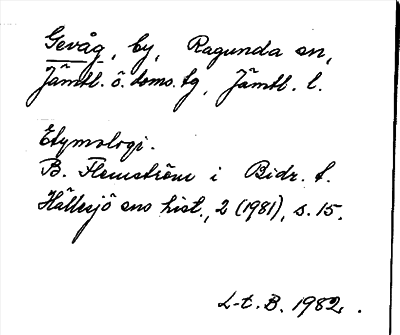 Gevåg, by, Ragunda sn,
Jämtl. ö. doms. tg, Jämtl. l.
Etymologi.
B. Flemström i Bidr. t.
Hällesjö sns hist., 2 (1981), s. 15.
L-t. B. 1982.